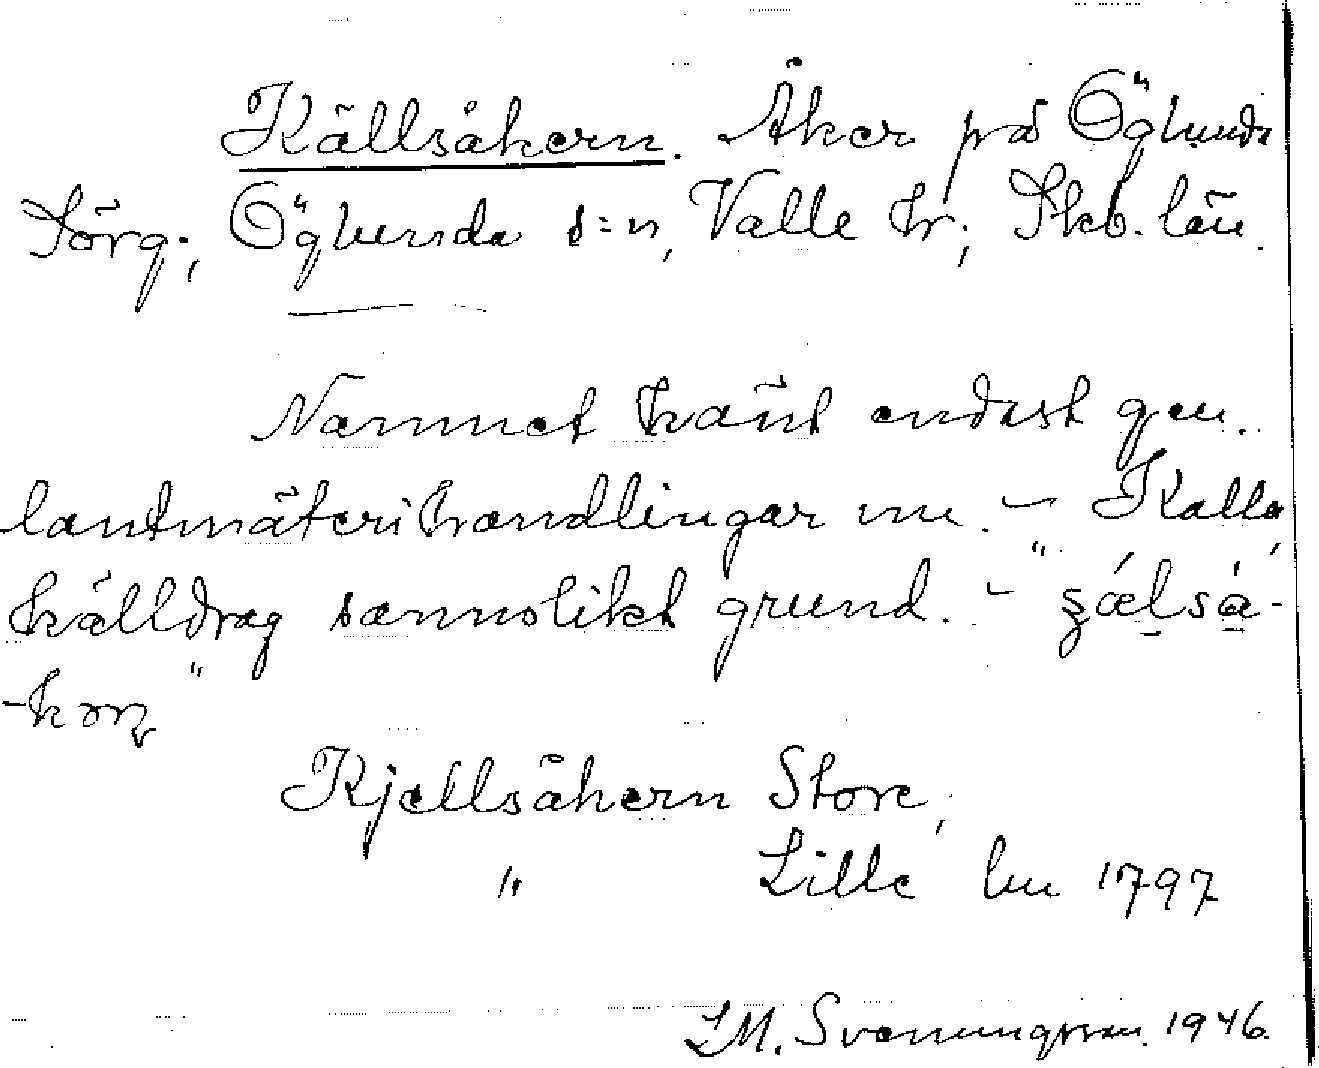 Källsåkern. Åker på Öglunda
Törg., Öglunda s=n, Valle hr, Skb. län.
Namnet känt endast gen.
lantmäterihandlingar nu. - Kalla
källdrag sannolikt grund. - "ʂǽlså-
-kərn"
Kjellsåkern Store,
" Lille lm 1797
I.M. Svenungsson. 1946.